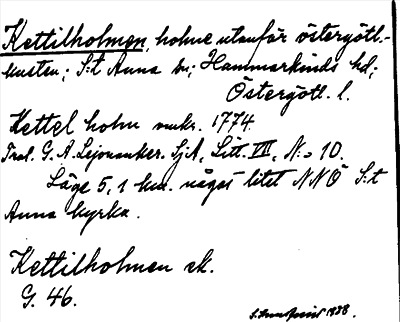 Kettilholmen, holme utanför östergötl.-
kusten; S:t Anna sn; Hammarkinds hd;
Östergötl. l.
Kettel holm omkr. 1774.
G. A. Lejonanker. SjA, Litt. VII, N:o 10.
Läge 5,1 km. något litet NNÖ S:t
Anna kyrka.
Kettilholmen ek.
G. 46.
1938.